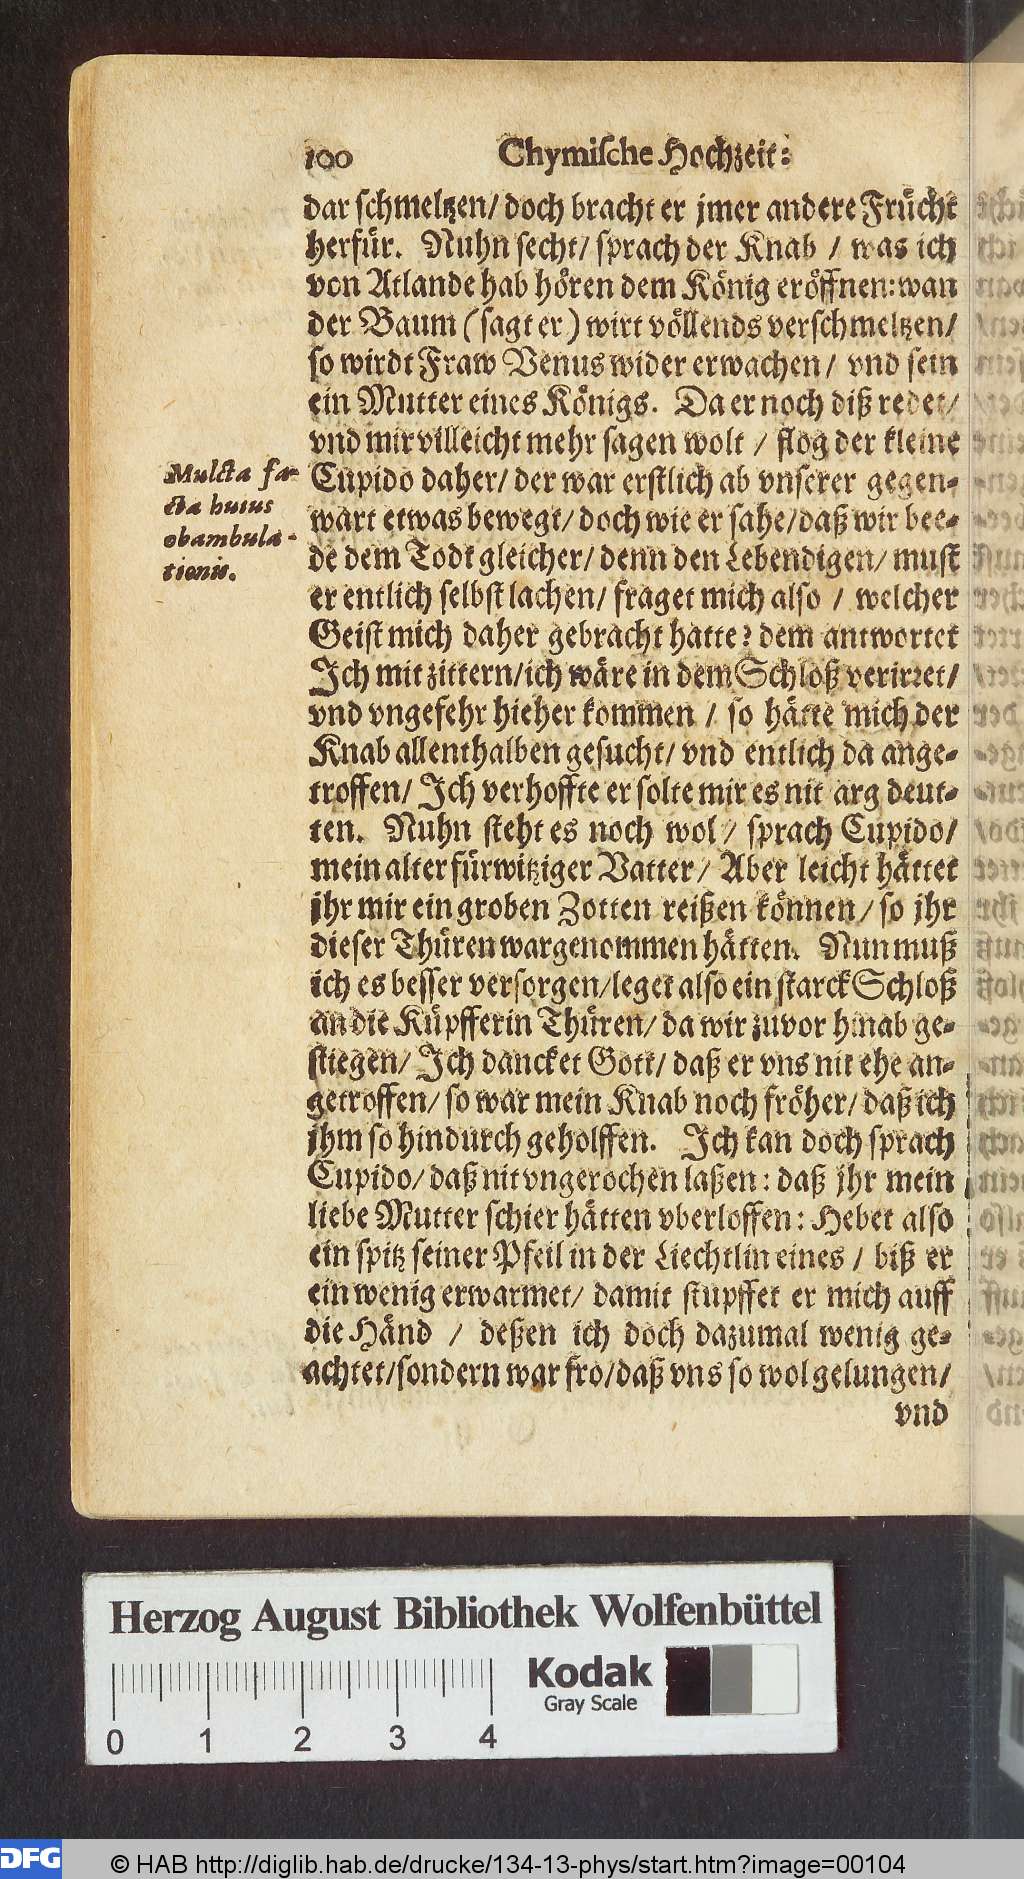 100 Chymiſche Hochzeit:
dar ſchmeltzen/ doch bracht er jmer andere Fruͤcht
herfuͤr. Nuhn ſecht/ ſprach der Knab / was ich
von Atlande hab hoͤren dem Koͤnig eroͤffnen: wan
der Baum (ſagt er) wirt voͤllends verſchmeltzen/
ſo wirdt Fraw Venus wider erwachen/ vnd ſein
ein Mutter eines Koͤnigs. Da er noch diß redet/
vnd mir villeicht mehr ſagen wolt / flog der kleine
Cupido daher/ der war erſtlich ab vnſerer gegen-
wart etwas bewegt/ doch wie er ſahe/ daß wir bee-
de dem Todt gleicher/ denn den Lebendigen/ muſt
er entlich ſelbſt lachen/ fraget mich alſo / welcher
Geiſt mich daher gebracht hatte? dem antwortet
Ich mit zittern/ ich waͤre in dem Schloß verirret/
vnd vngefehr hieher kommen / ſo haͤtte mich der
Knab allenthalben geſucht/ vnd entlich da ange-
troffen/ Ich verhoffte er ſolte mir es nit arg deut-
ten. Nuhn ſteht es noch wol / ſprach Cupido/
mein alter fuͤrwitziger Vatter / Aber leicht haͤttet
jhr mir ein groben Zotten reißen koͤnnen/ ſo jhr
dieſer Thuͤren wargenommen haͤtten. Nun muß
ich es beſſer verſorgen/ leget alſo ein ſtarck Schloß
an die Kuͤpfferin Thuͤren/ da wir zuvor hinab ge-
ſtiegen/ Ich dancket Gott/ daß er vns nit ehe an-
getroffen/ ſo war mein Knab noch froͤher/ daß ich
jhm ſo hindurch geholffen. Ich kan doch ſprach
Cupido/ daß nit vngerochen laßen: daß jhr mein
liebe Mutter ſchier haͤtten vberloffen: Hebet alſo
ein ſpitz ſeiner Pfeil in der Liechtlin eines / biß er
ein wenig erwarmet/ damit ſtupffet er mich auff
die Haͤnd / deßen ich doch dazumal wenig ge-
achtet/ ſondern war fro/ daß vns ſo wol gelungen/
vnd
Mulcta fa-
cta huius
obambula-
tionis.
Herzog August Bibliothek Wolfenbüttel
Kodak
Gray Scale
0 1 2 3 4
DFG © HAB http://diglib.hab.de/drucke/134-13-phys/start.htm?image=00104